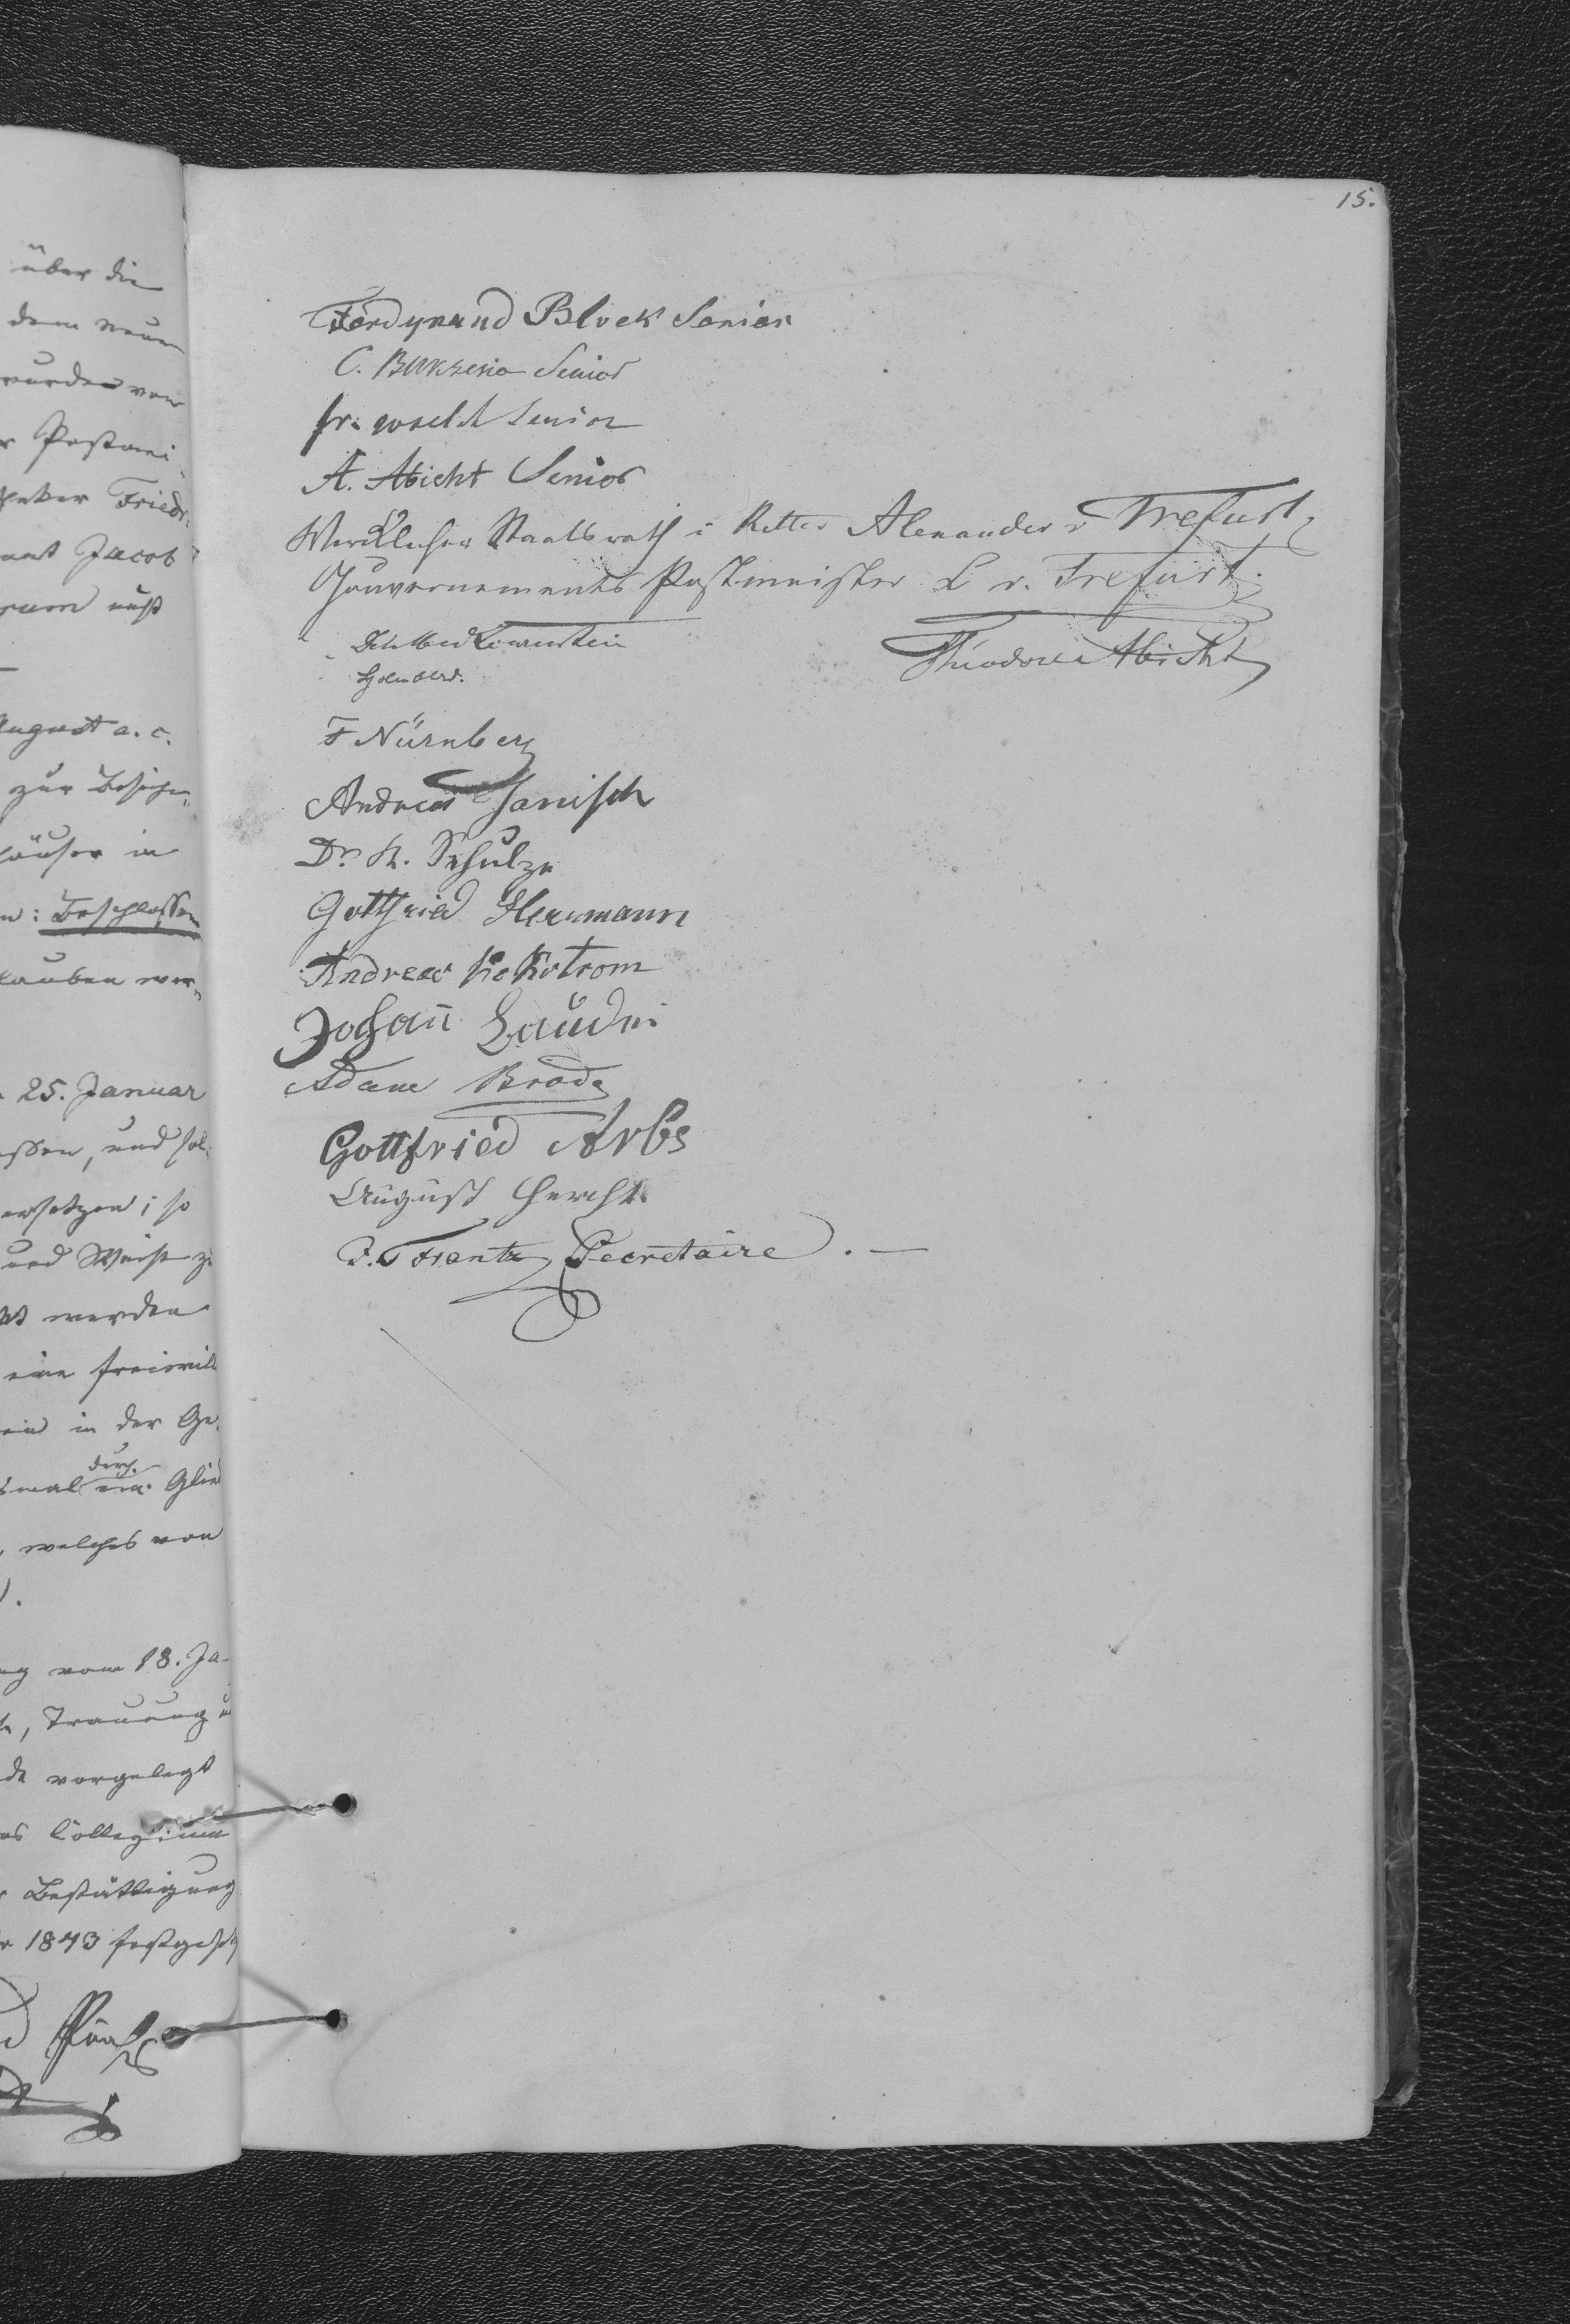 über die
dem neuen
wurden von
r Postmei-
theker Friedr.
nat Jacob
rum nebst
August a. c.
zur Besich-
häuser in
n: Beschlossen
lauben wer-
25. Januar
essen, und sol-
ersetzen; so
und Weise zu
werden
eine freiwill
in der Ge-
durch
smal Glied
, welches von
).
ng vom 18. Ja-
, Trauung u
de vorgelegt
as Collegium
r Bestättigung
r 1843 festgesetz
15.
Ferdynand Block Senior
C. Senior
fr. Senior
A. Abicht Senior
Wercklicher Staatsrath u Ritter Alexander v Trefurt
Gouvernements Postmeister L v. Trefurt.
Theodore Abicht
F Nürnberg
Andreas Janisch
Dr. K. Schulze
Gottfried Herrmann
Andreas
Johañ Laudin
Adam Brode
Gottfried Arbs
August Hercht
J. Frantz Secretaire. —